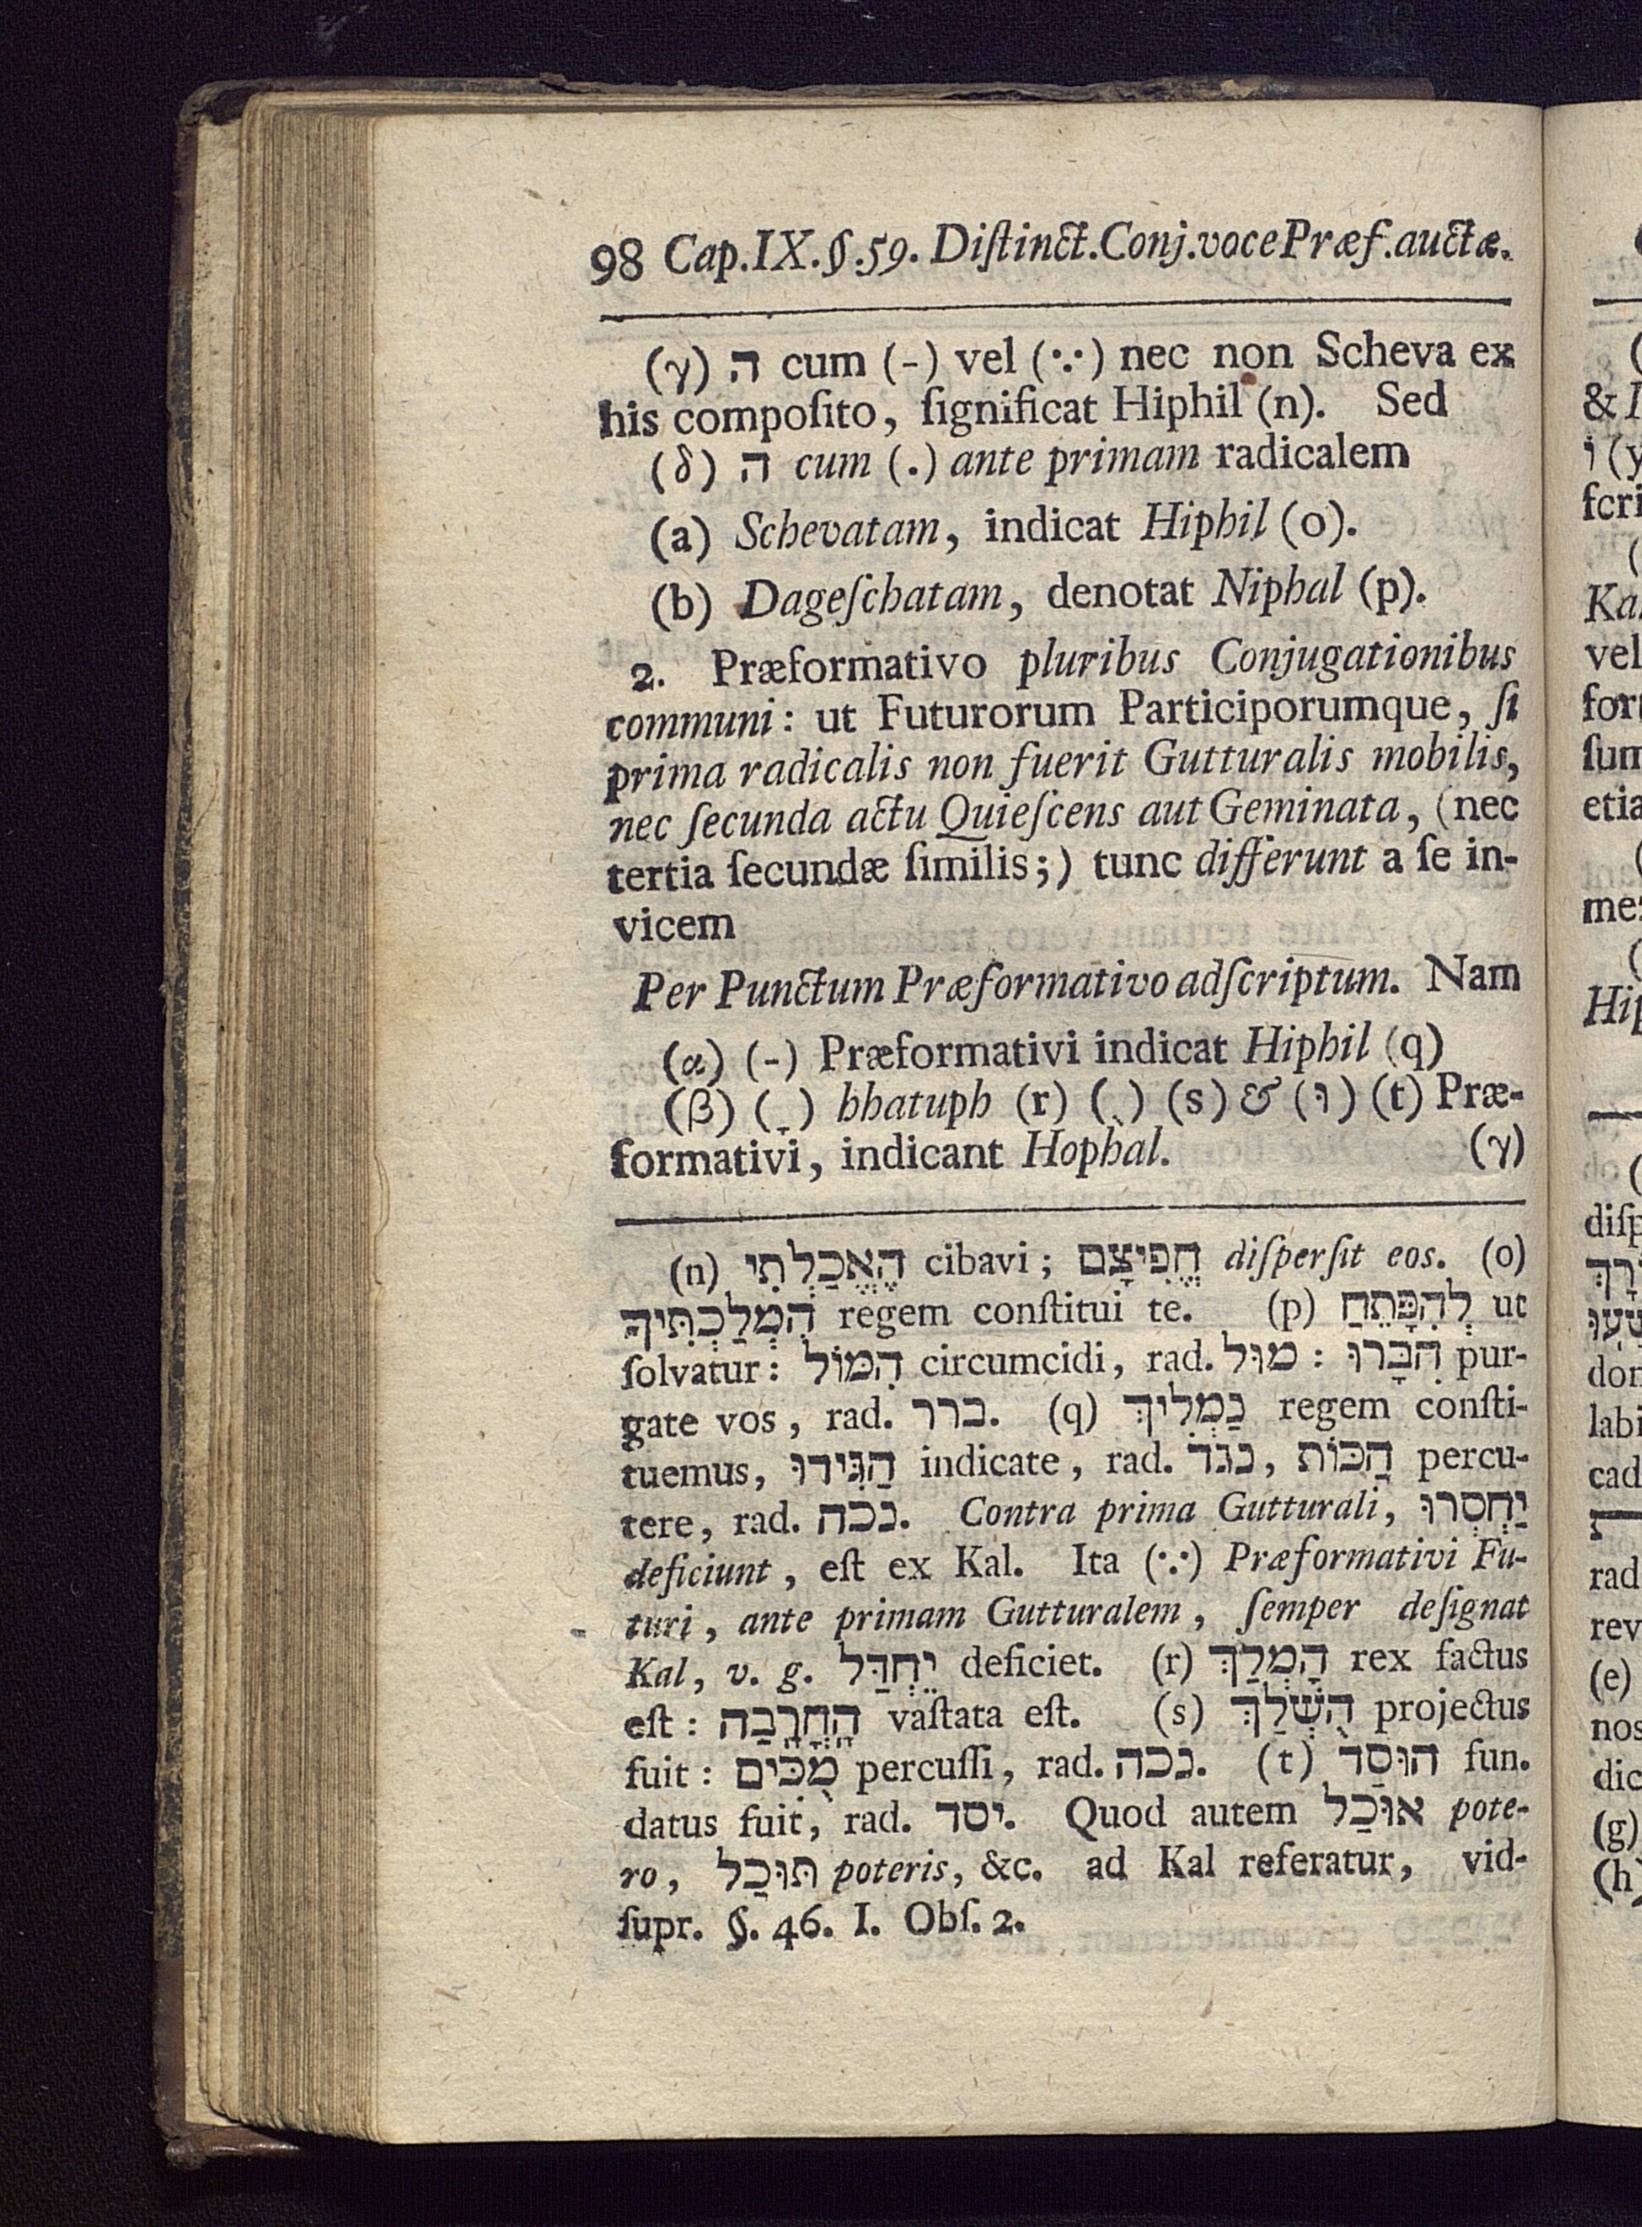 98 Cap.IX.§.59. Diſtinct.Conj.voce Præf.auctæ.
(γ) ה cum (-) vel (∵) nec non Scheva ex
his compoſito, ſignificat Hiphil (n). Sed
(δ) ה cum (.) ante primam radicalem
(a) Schevatam, indicat Hiphil (o).
(b) Dageſchatam, denotat Niphal (p).
2. Præformativo pluribus Conjugationibus
communi: ut Futurorum Participorumque, ſi
prima radicalis non fuerit Gutturalis mobilis,
nec ſecunda actu Quieſcens aut Geminata, (nec
tertia ſecundæ ſimilis;) tunc differunt a ſe in-
vicem
Per Punctum Præformativo adſcriptum. Nam
(α) (-) Præformativi indicat Hiphil (q)
(β) (ָ) hhatuph (r) (ֻ) (s) & (וּ) (t) Præ-
formativi, indicant Hophal. (γ)
(n) הֶאֱכַלְתִּי cibavi; חֱפִיצָם diſperſit eos. (o)
הִמְלַכְתִּיךָ regem conſtitui te. (p) לְהִפָּתֵחַ ut
ſolvatur: הִמּוֹל circumcidi, rad. מוּל : הִבָּרוּ pur-
gate vos, rad. ברר. (q) נַמְלִיךְ regem conſti-
tuemus, הַגִּידוּ indicate, rad. נגד, הַכּוֹת percu-
tere, rad. נכה. Contra prima Gutturali, יַחְסְרוּ
deficiunt, eſt ex Kal. Ita (∵) Præformativi Fu-
turi, ante primam Gutturalem, ſemper deſignat
Kal, v. g. יֶחְדַּל deficiet. (r) הָמְלַךְ rex factus
eſt: הָחֳרָבָה vaſtata eſt. (s) הֻשְׁלַךְ projectus
fuit: מֻכִּים percuſſi, rad. נכה. (t) הוּסַד fun.
datus fuit, rad. יסד. Quod autem אוּכַל pote-
ro, תּוּכַל poteris, &c. ad Kal referatur, vid-
ſupr. §. 46. I. Obſ. 2.